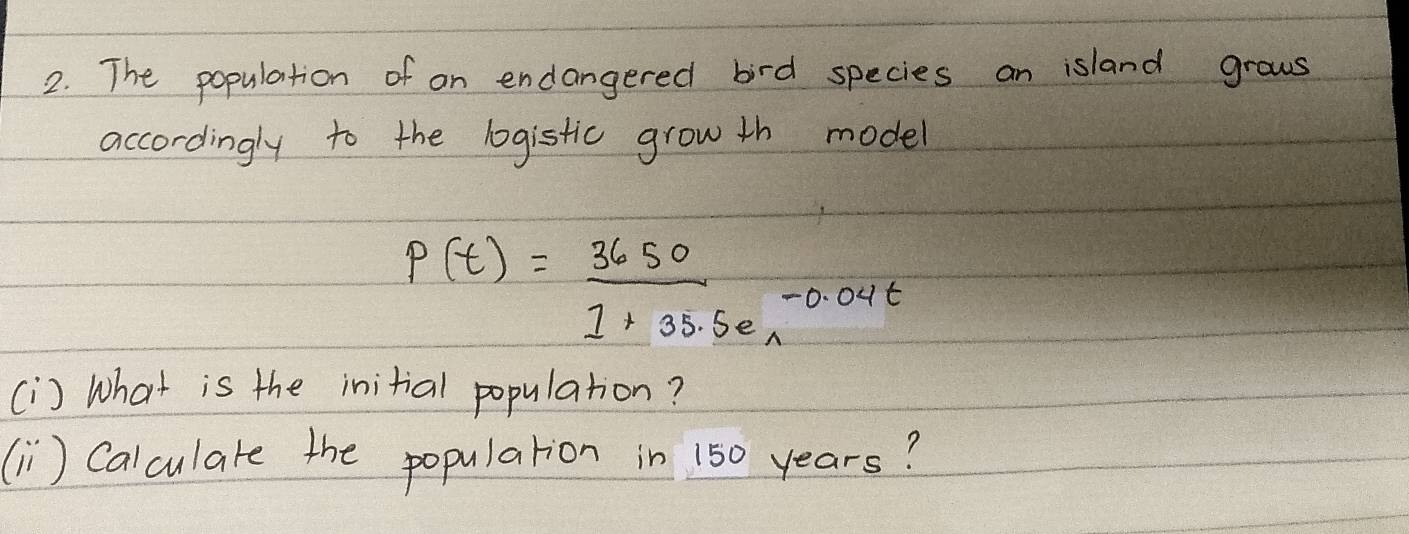 2. The population of an endangered bird species an island grows
accordingly to the logistic growth model
P(t) = 3650
1 + 35.5e^-0.04t
(i) What is the initial population?
(ii) Calculate the population in 150 years?